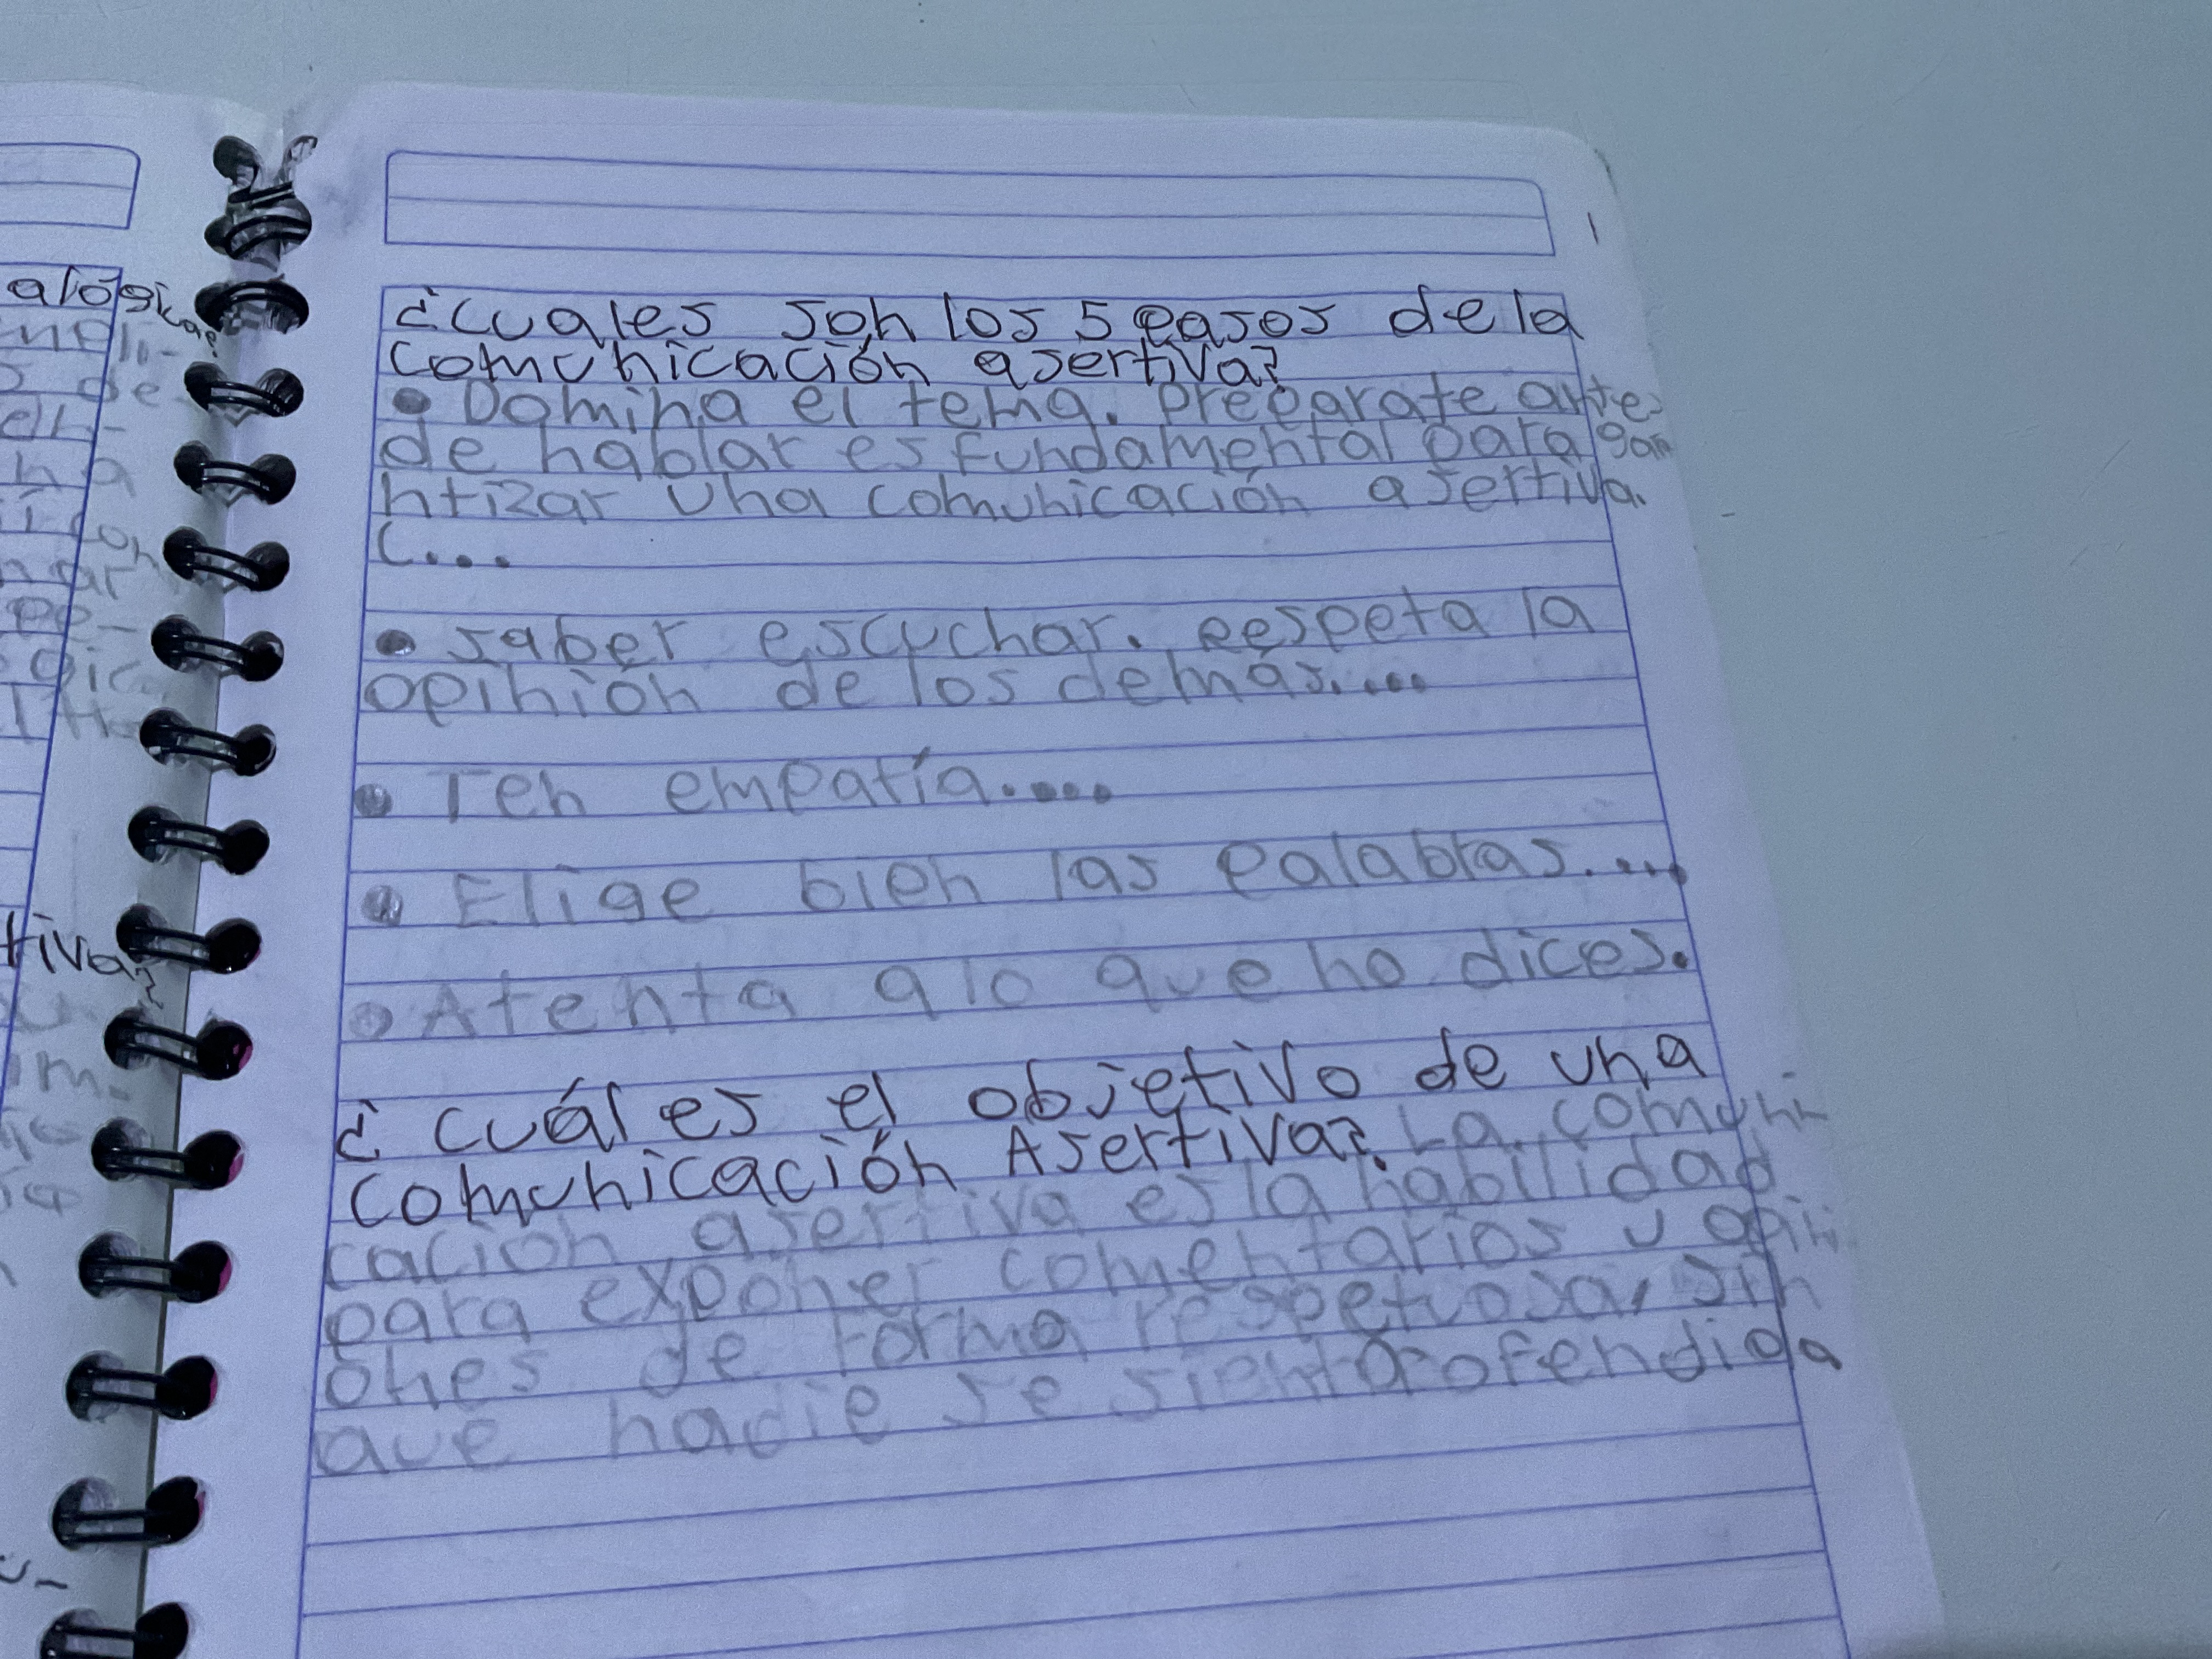 alógica?
de
tiva?
¿Cuales son los 5 pasos de la
comunicación asertiva?
• Domina el tema. Preparate antes
de hablar es fundamental para gan
ntizar una comunicación asertiva.
(....
• saber escuchar. Respeta la
opinión de los demás.....
• Ten empatía.....
• Elige bien las palabras.....
• Atenta a lo que no dices.
¿ cuál es el objetivo de una
comunicación Asertiva?. La comuni
cación asertiva es la habilidad
para exponer comentarios y opini
ones de forma respetuosa, sin
que nadie se sienta ofendida